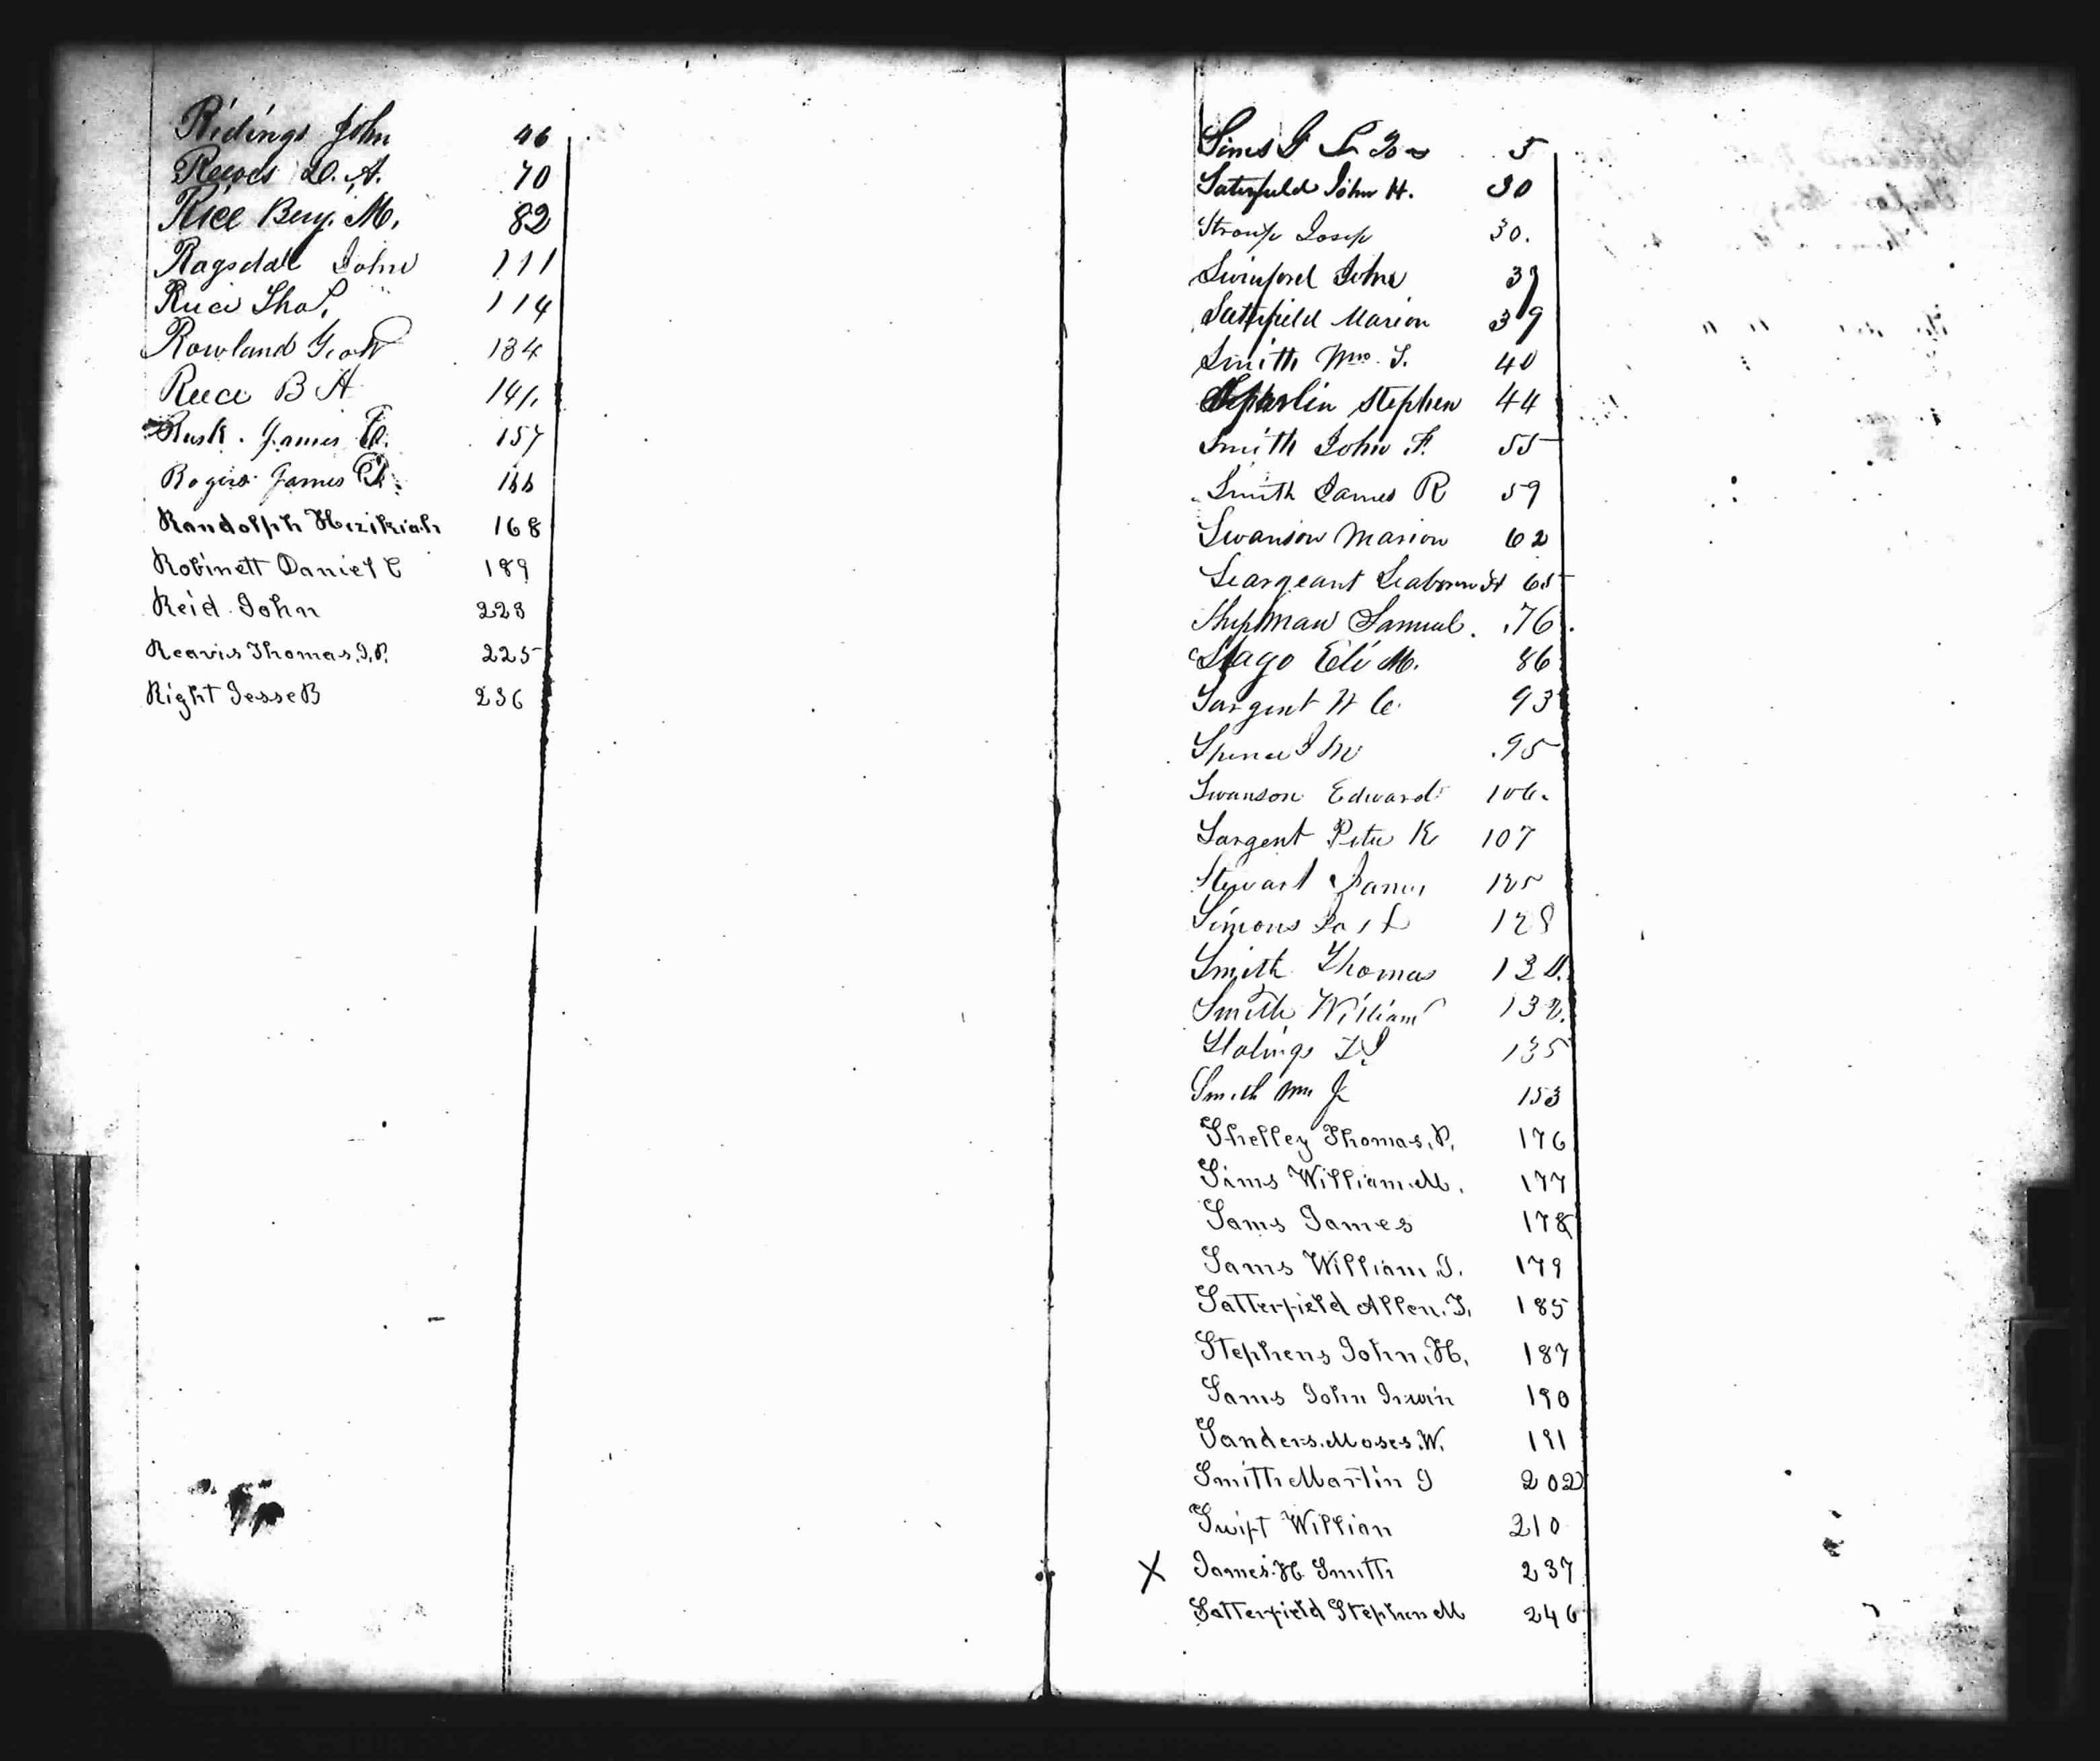 Ridings John 46
Reeves D. A. 70
Rice Benj. M. 82
Ragsdale John 111
Rice Thos. 114
Rowland Geo W 134
Reece B H 141.
Rusk. James E. 157
Rogers James R. 166
Randolph Hezikiah 168
Robinett Daniel C 189
Reid John 223
Reavis Thomas. J. P. 225
Right Jesse B 236
Sims G 5
Saterfield John H. 30
Stroup Josep 30.
Swinford John 37
Satterfield Marion 39
Smith Wm. T. 40
Stephen 44
Smith John F. 55
Smith James R 59
Swanson Marion 62
Seargeant 65
Shipman Samuel. 76.
Slago Eli M. 86
Sargent H C. 93
Spence J M 95
Swanson Edward 106.
Sargent Peter K 107
Stewart James 125
Simons 128
Smith Thomas
Smith William 132.
135
Smith Wm J 153
Shelley Thomas. P. 176
Sims William. M. 177
Sams James 178
Sams William. J. 179
Satterfield Allen. T. 185
Stephens John. H. 187
Sams John Irwin 190
Sanders. Moses. W. 191
Smith Martin J 202
Swift William 210
X James. H Smith 237
Satterfield Stephen M 246